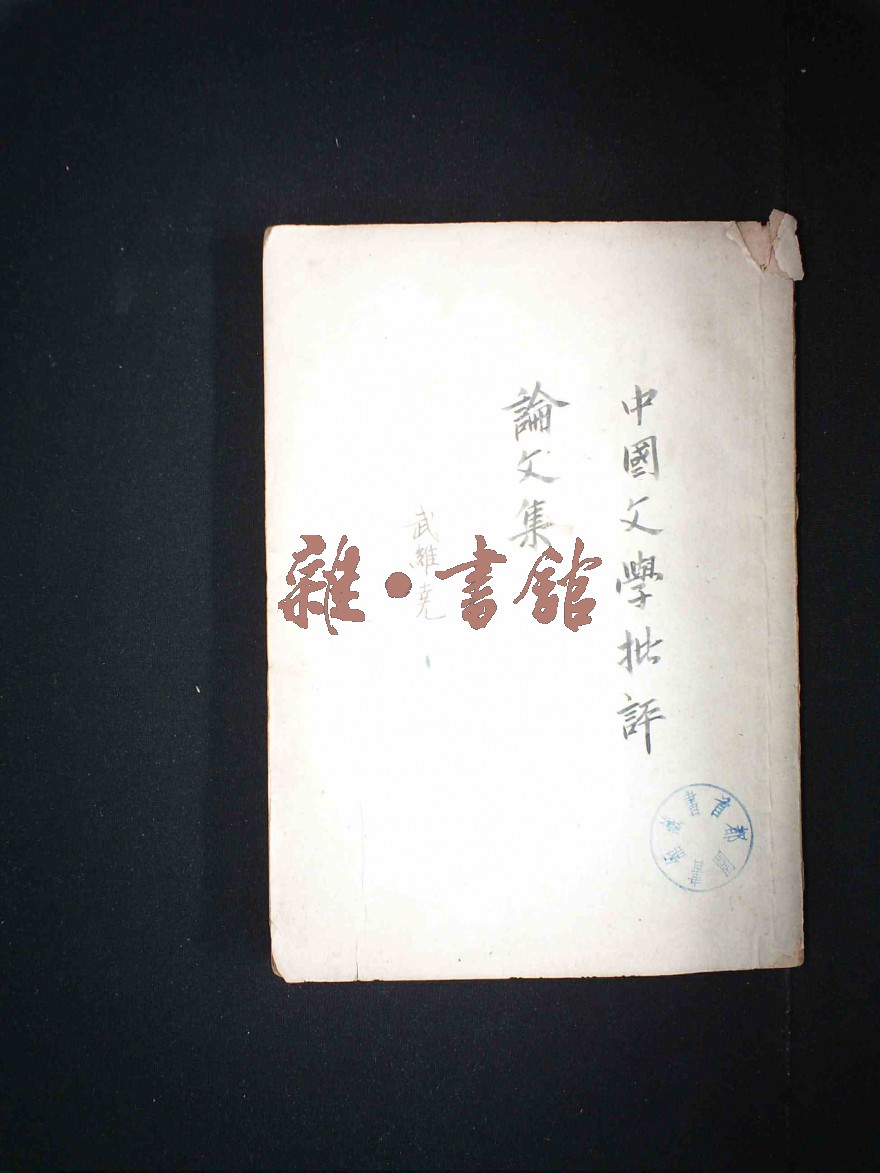 中國文學批評
論文集
武維堯
雜·書館